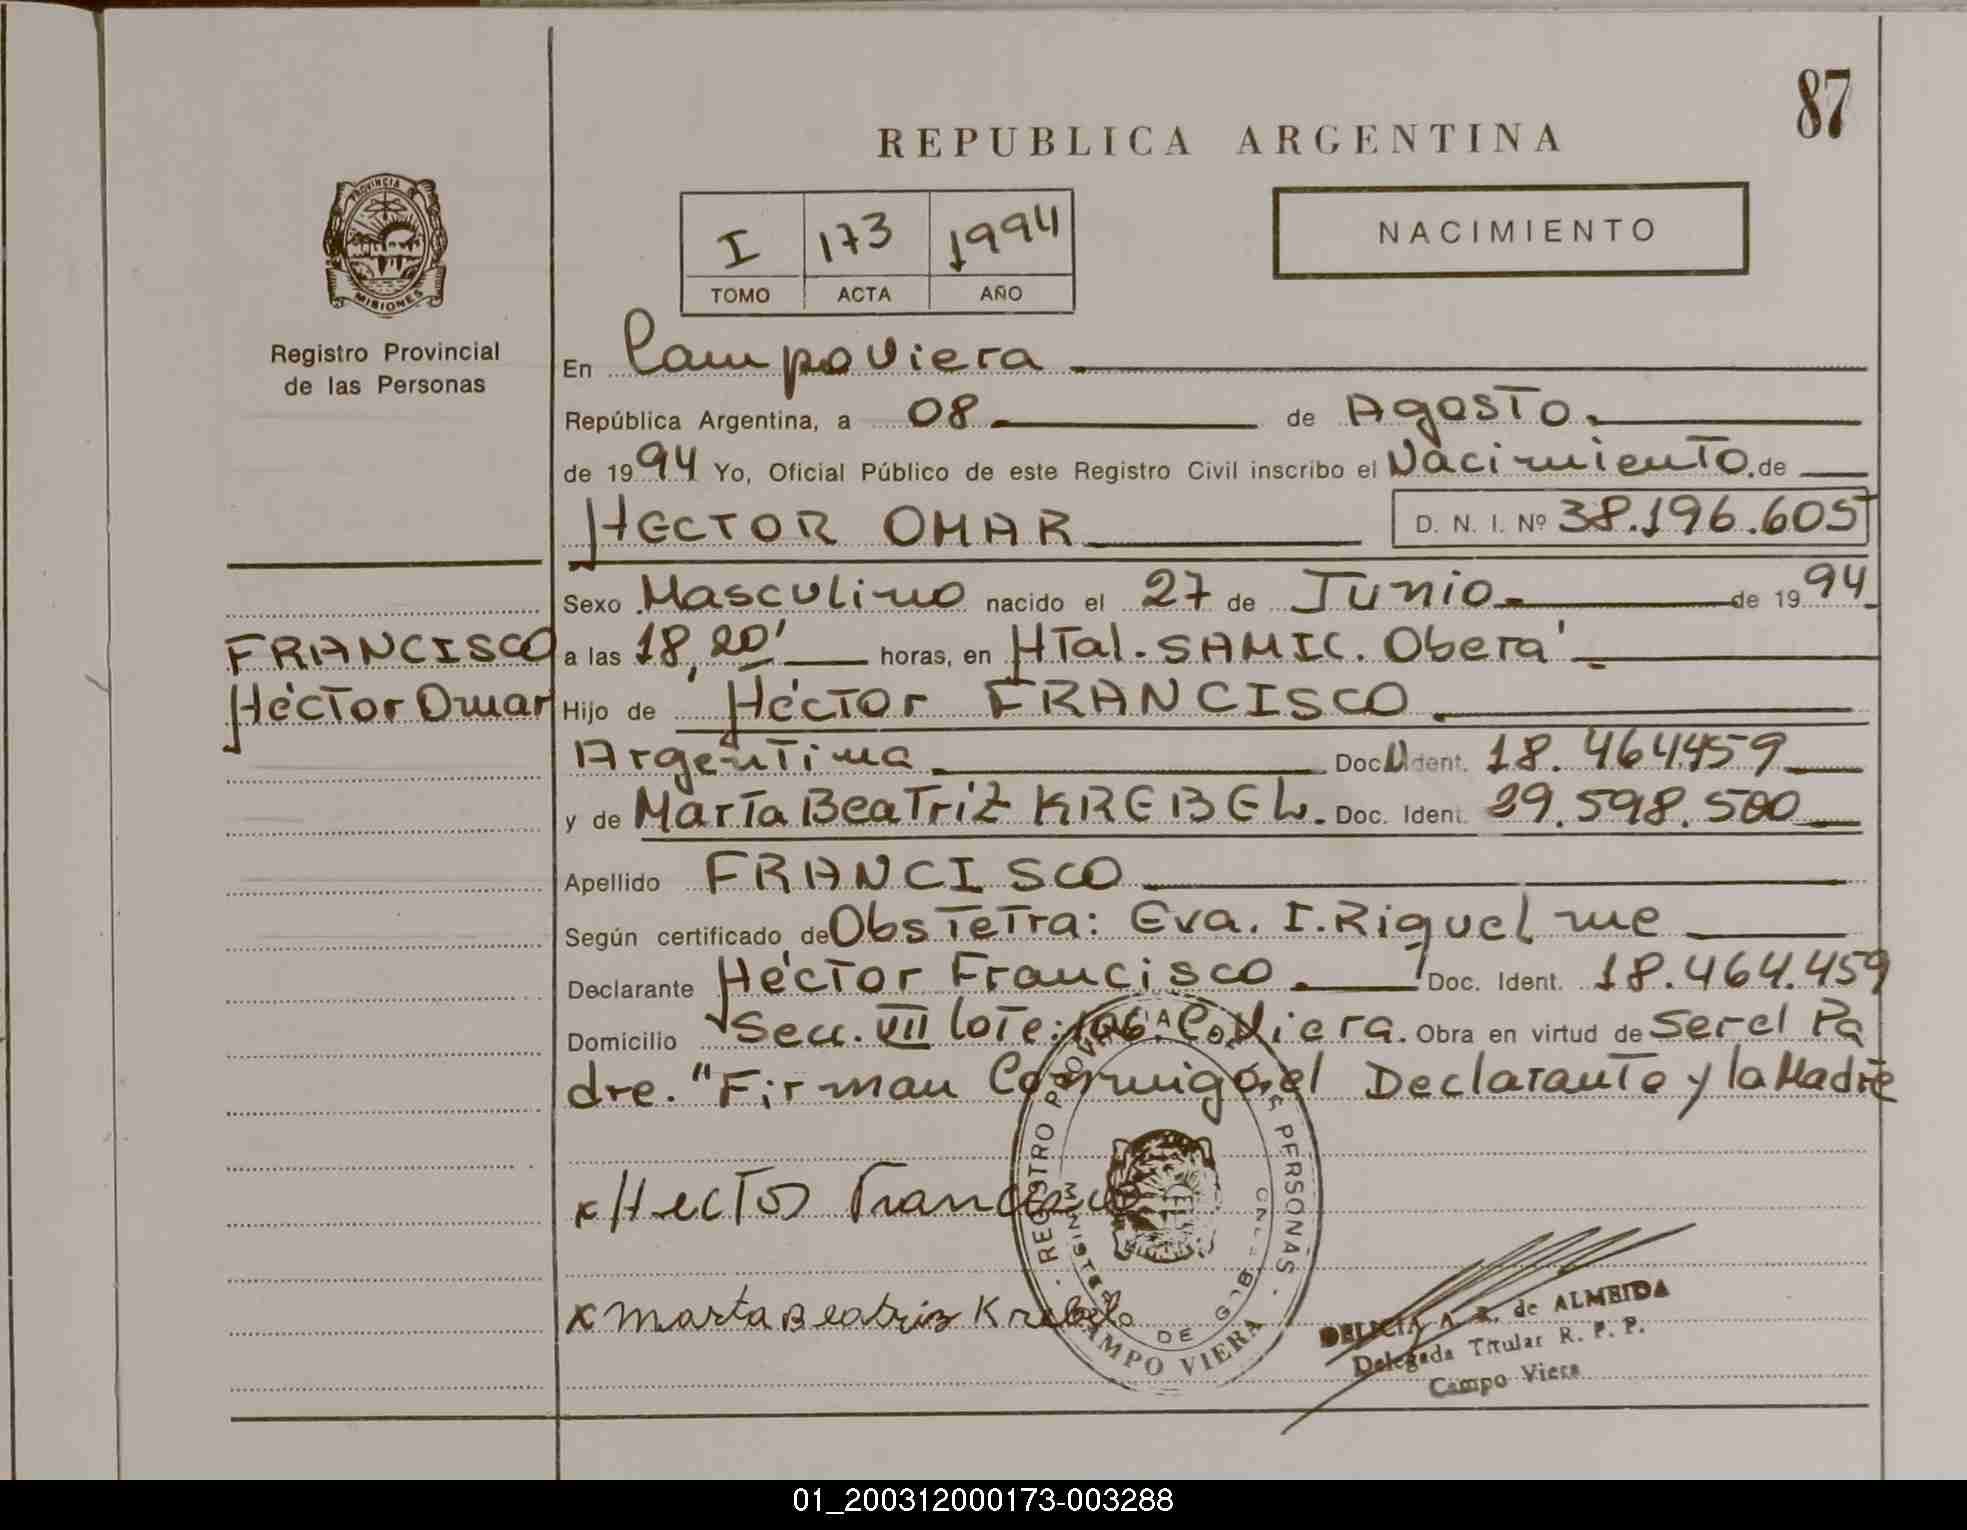 87
REPUBLICA ARGENTINA
NACIMIENTO
I 173 1994
TOMO ACTA AÑO
PROVINCIA DE
MISIONES
Registro Provincial
de las Personas
En Campo Viera
República Argentina, a 08 de Agosto.
de 1994 Yo, Oficial Público de este Registro Civil inscribo el Nacimiento. de
HECTOR OMAR D. N. I. Nº 38.196.605
Sexo Masculino nacido el 27 de Junio de 1994
FRANCISCO
Héctor Omar
a las 18,20' horas, en HTal. SAMIC. Oberá
Hijo de Héctor FRANCISCO
Argentina Doc. Ident. 18.464.459
y de Marta Beatriz KREBEL. Doc. Ident. 39.598.500
Apellido FRANCISCO
Según certificado de Obstetra: Eva. I. Riquelme
Declarante Héctor Francisco. Doc. Ident. 18.464.459
Domicilio Secc. VII lote: 106. C. Viera. Obra en virtud de Ser el Pa
dre. "Firman Conmigo, el Declarante y la Madre
x Hector Francisco
x Marta Beatriz Krebel
REGISTRO PROVINCIAL DE LAS PERSONAS
MINISTERIO DE GOB.
CAMPO VIERA
DELICIA A. R. de ALMEIDA
Delegada Titular R. P. P.
Campo Viera
01_200312000173-003288